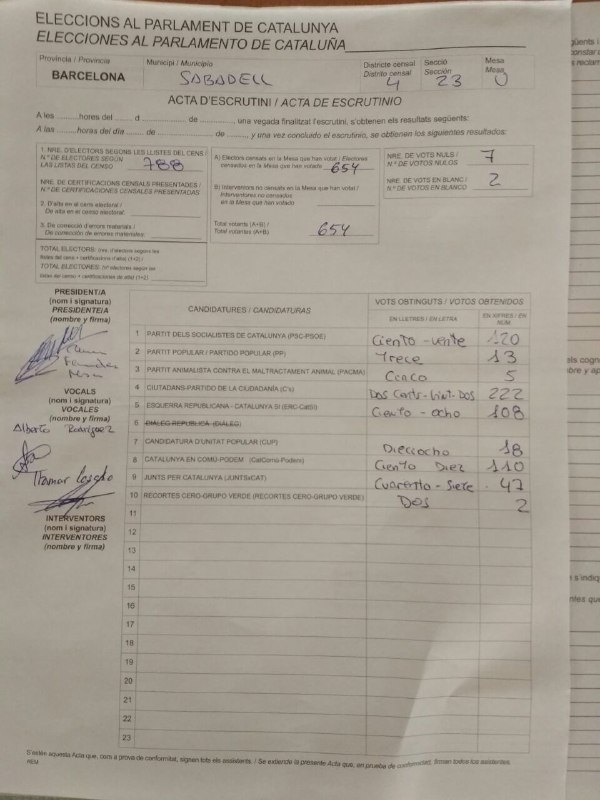 ELECCIONS AL PARLAMENT DE CATALUNYA
ELECCIONES AL PARLAMENTO DE CATALUÑA
Província / Provincia
BARCELONA
Municipi / Municipio
SABADELL
Districte censal
Distrito censal
4
Secció
Sección
23
Mesa
Mesa
U
ACTA D'ESCRUTINI / ACTA DE ESCRUTINIO
A les ..........hores del ........ d ............. de .............., una vegada finalitzat l'escrutini, s'obtenen els resultats següents:
A las ..........horas del día ........ de ............. de .............., y una vez concluido el escrutinio, se obtienen los siguientes resultados:
1. NRE. D'ELECTORS SEGONS LES LLISTES DEL CENS /
N.º DE ELECTORES SEGÚN
LAS LISTAS DEL CENSO
788
NRE. DE CERTIFICACIONS CENSALS PRESENTADES /
N.º DE CERTIFICACIONES CENSALES PRESENTADAS
2. D'alta en el cens electoral /
De alta en el censo electoral:
3. De correcció d'errors materials /
De corrección de errores materiales:
TOTAL ELECTORS: (nre. d'electors segons les
llistes del cens + certificacions d'alta) (1+2) /
TOTAL ELECTORES: (nº electores según las
listas del censo + certificaciones de alta) (1+2)
A) Electors censats en la Mesa que han votat / Electores
censados en la Mesa que han votado
654
B) Interventors no censats en la Mesa que han votat /
Interventores no censados
en la Mesa que han votado
Total votants (A+B) /
Total votantes (A+B)
654
NRE. DE VOTS NULS /
N.º DE VOTOS NULOS
7
NRE. DE VOTS EN BLANC /
N.º DE VOTOS EN BLANCO
2
PRESIDENT/A
(nom i signatura)
PRESIDENTE/A
(nombre y firma)
VOCALS
(nom i signatura)
VOCALES
(nombre y firma)
Alberto Rodríguez
INTERVENTORS
(nom i signatura)
INTERVENTORES
(nombre y firma)
CANDIDATURES / CANDIDATURAS
VOTS OBTINGUTS / VOTOS OBTENIDOS
EN LLETRES / EN LETRA
EN XIFRES / EN NÚM
1 PARTIT DELS SOCIALISTES DE CATALUNYA (PSC-PSOE) Ciento - veinte 120
2 PARTIT POPULAR / PARTIDO POPULAR (PP) Trece 13
3 PARTIT ANIMALISTA CONTRA EL MALTRACTAMENT ANIMAL (PACMA) Cinco 5
4 CIUTADANS-PARTIDO DE LA CIUDADANÍA (C's) Dos Cents - Vint - Dos 222
5 ESQUERRA REPUBLICANA - CATALUNYA SÍ (ERC-CatSí) Ciento - ocho 108
6 DIÀLEG REPUBLICÀ (DIÀLEG)
7 CANDIDATURA D'UNITAT POPULAR (CUP) Dieciocho 18
8 CATALUNYA EN COMÚ-PODEM (CatComú-Podem) Ciento Diez 110
9 JUNTS PER CATALUNYA (JUNTSxCAT) Cuarenta - Siete 47
10 RECORTES CERO-GRUPO VERDE (RECORTES CERO-GRUPO VERDE) Dos 2
11
12
13
14
15
16
17
18
19
20
21
22
23
S'estén aquesta Acta que, com a prova de conformitat, signen tots els assistents. / Se extiende la presente Acta que, en prueba de conformidad, firman todos los asistentes.